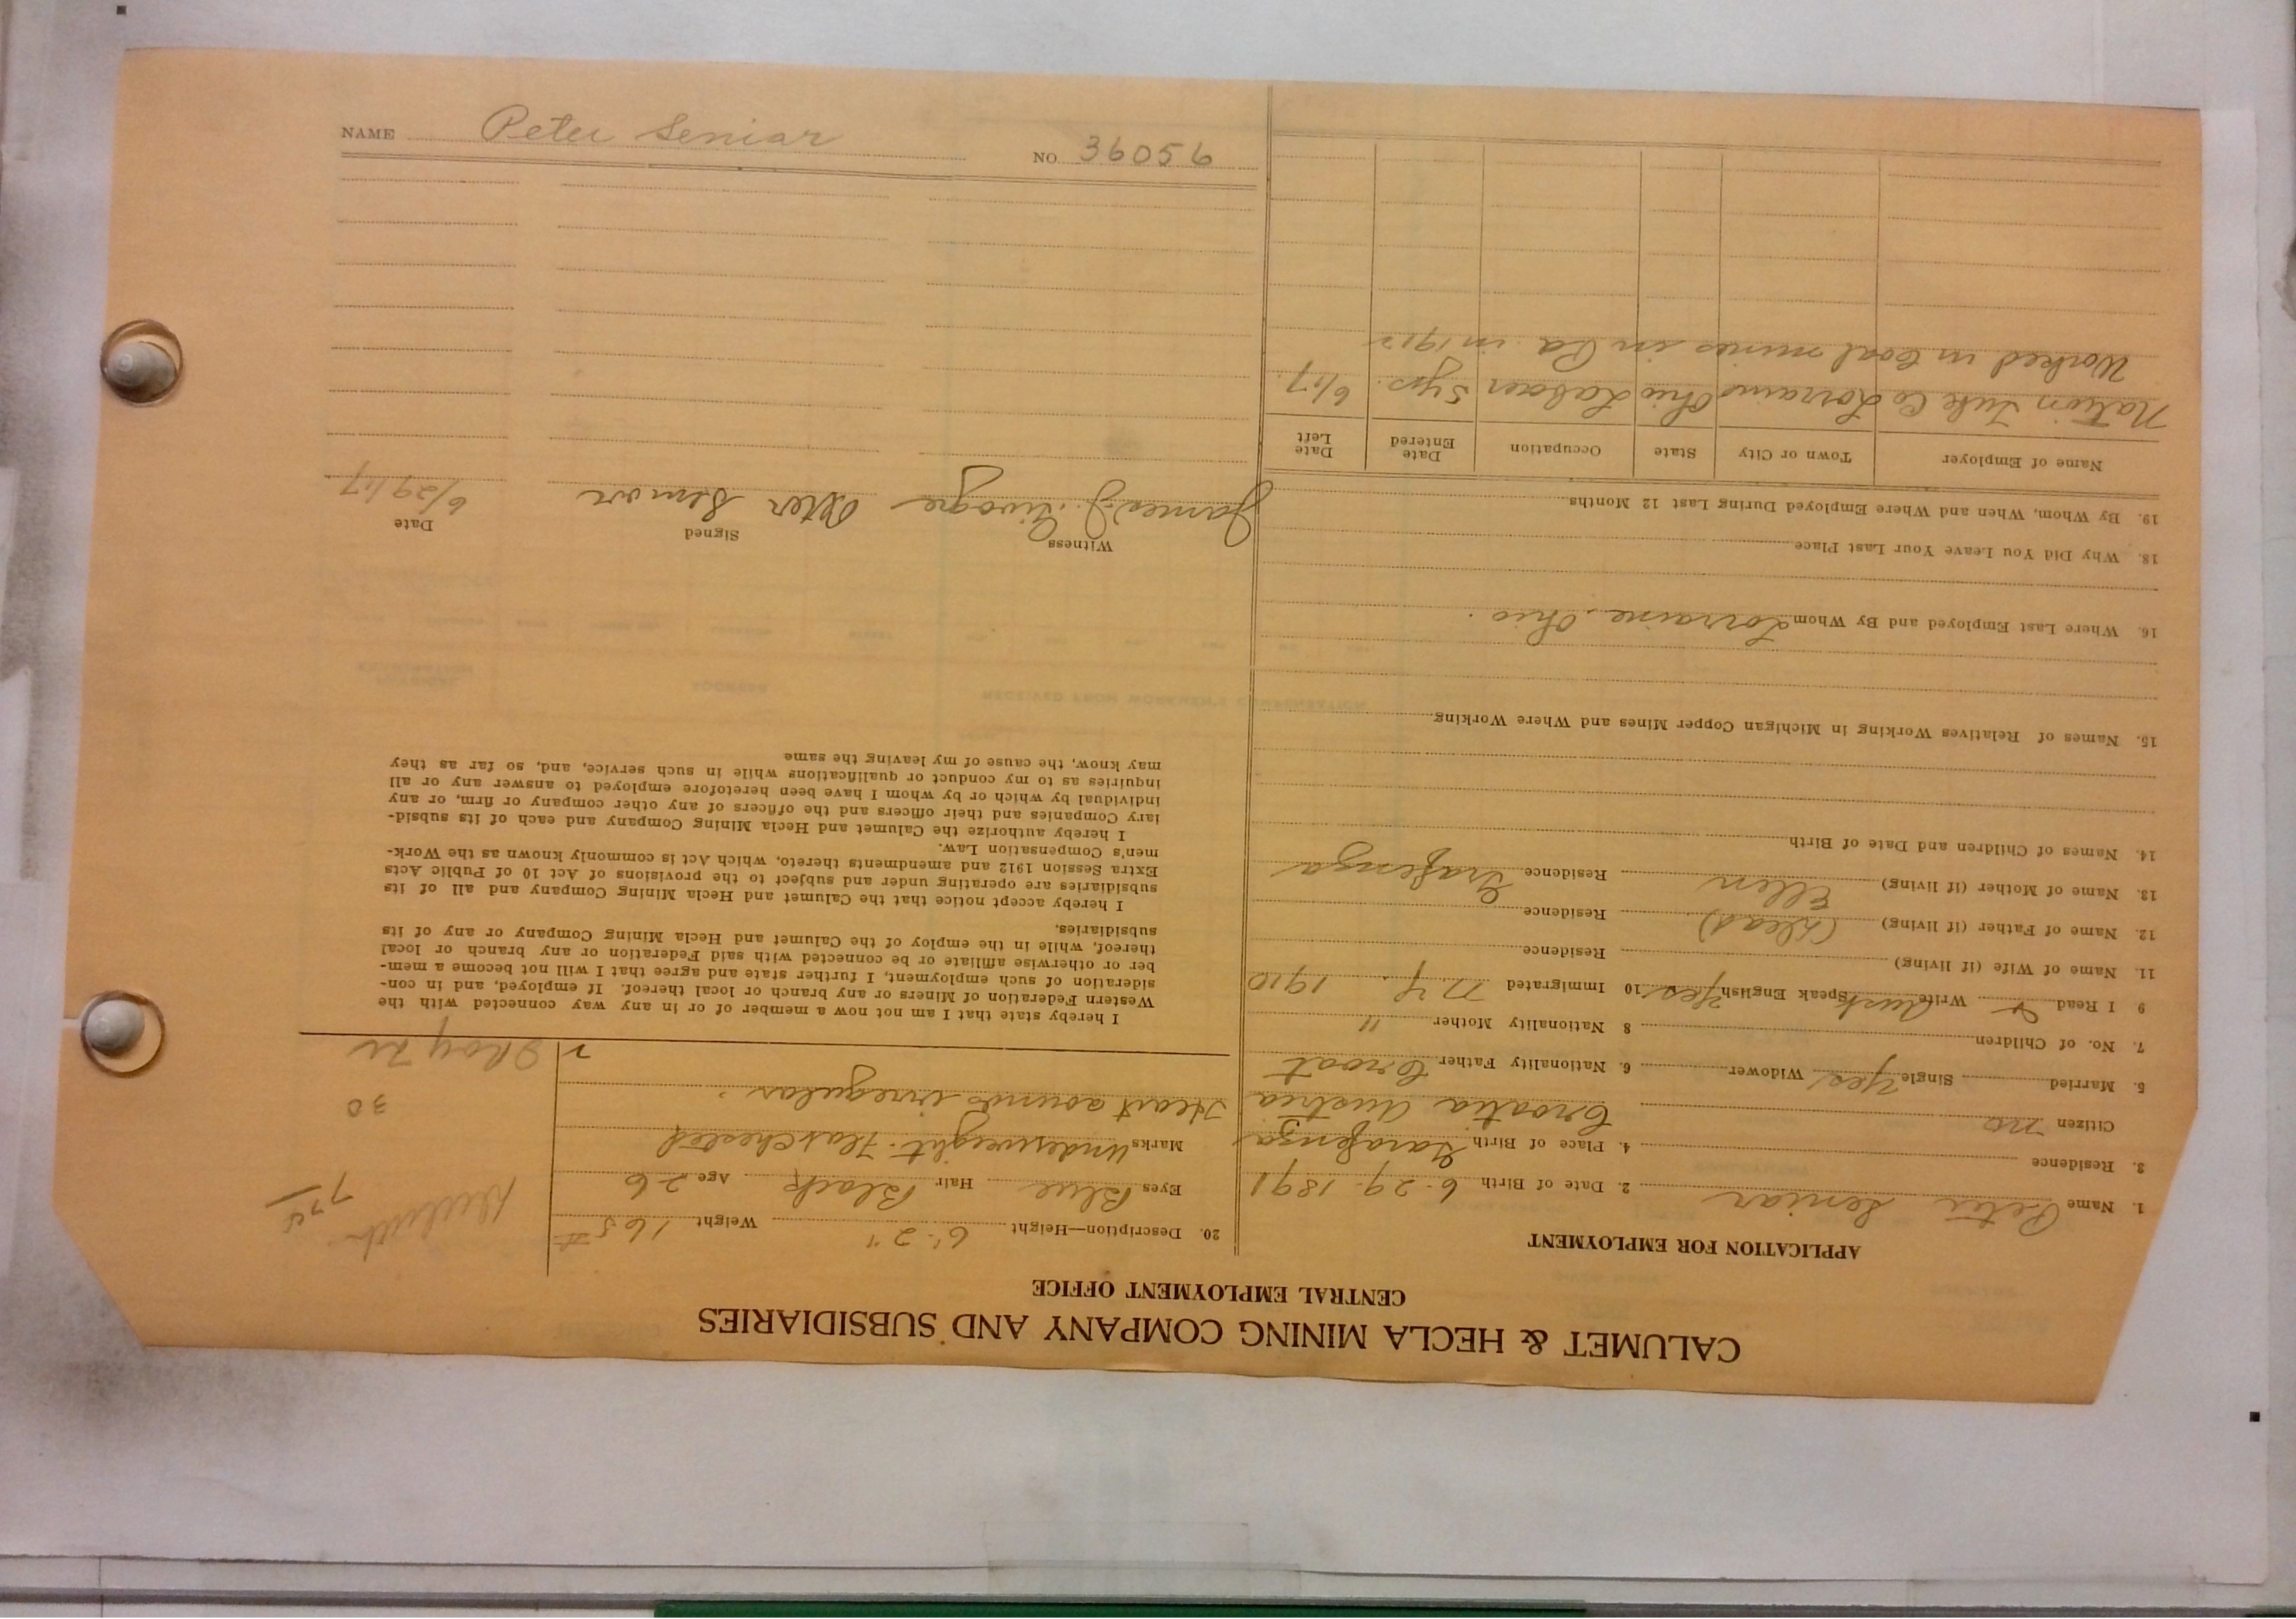 NAME Peter Seniar NO 36056
CALUMET & HECLA MINING COMPANY AND SUBSIDIARIES
CENTRAL EMPLOYMENT OFFICE
APPLICATION FOR EMPLOYMENT
1. Name Peter Seniar 2. Date of Birth 6-29-1891
3. Residence 4. Place of Birth
Citizen no Croatia Austria
5. Married Single Yes Widower 6. Nationality Father Croat
7. No. of Children 8 Nationality Mother "
9 I Read & Write Aust Speak English Yes 10 Immigrated N Y. 1910
11. Name of Wife (if living) Residence
12. Name of Father (if living) (Dead) Residence
13. Name of Mother (if living) Ellen Residence
14. Names of Children and Date of Birth
15. Names of Relatives Working in Michigan Copper Mines and Where Working
16. Where Last Employed and By Whom Lorraine, Ohio.
18. Why Did You Leave Your Last Place
19. By Whom, When and Where Employed During Last 12 Months
Name of Employer Town or City State Occupation Date Entered Date Left
Nation Tube Co Lorraine Ohio Laborer 5 yrs. 6/17
Worked in Coal mines in Pa. in 1912
20. Description—Height 6'-2" Weight 165#
Eyes Blue Hair Black Age 26
Marks Underweight. Flat Chested
Heart sounds irregular.
Duluth
7 75
30
I hereby state that I am not now a member of or in any way connected with the
Western Federation of Miners or any branch or local thereof. If employed, and in con-
sideration of such employment, I further state and agree that I will not become a mem-
ber or otherwise affiliate or be connected with said Federation or any branch or local
thereof, while in the employ of the Calumet and Hecla Mining Company or any of its
subsidiaries.
I hereby accept notice that the Calumet and Hecla Mining Company and all of its
subsidiaries are operating under and subject to the provisions of Act 10 of Public Acts
Extra Session 1912 and amendments thereto, which Act is commonly known as the Work-
men's Compensation Law.
I hereby authorize the Calumet and Hecla Mining Company and each of its subsid-
iary Companies and their officers and the officers of any other company or firm, or any
individual by which or by whom I have been heretofore employed to answer any or all
inquiries as to my conduct or qualifications while in such service, and, so far as they
may know, the cause of my leaving the same
Witness Signed Date
James J. Peter Semior 6/29/17